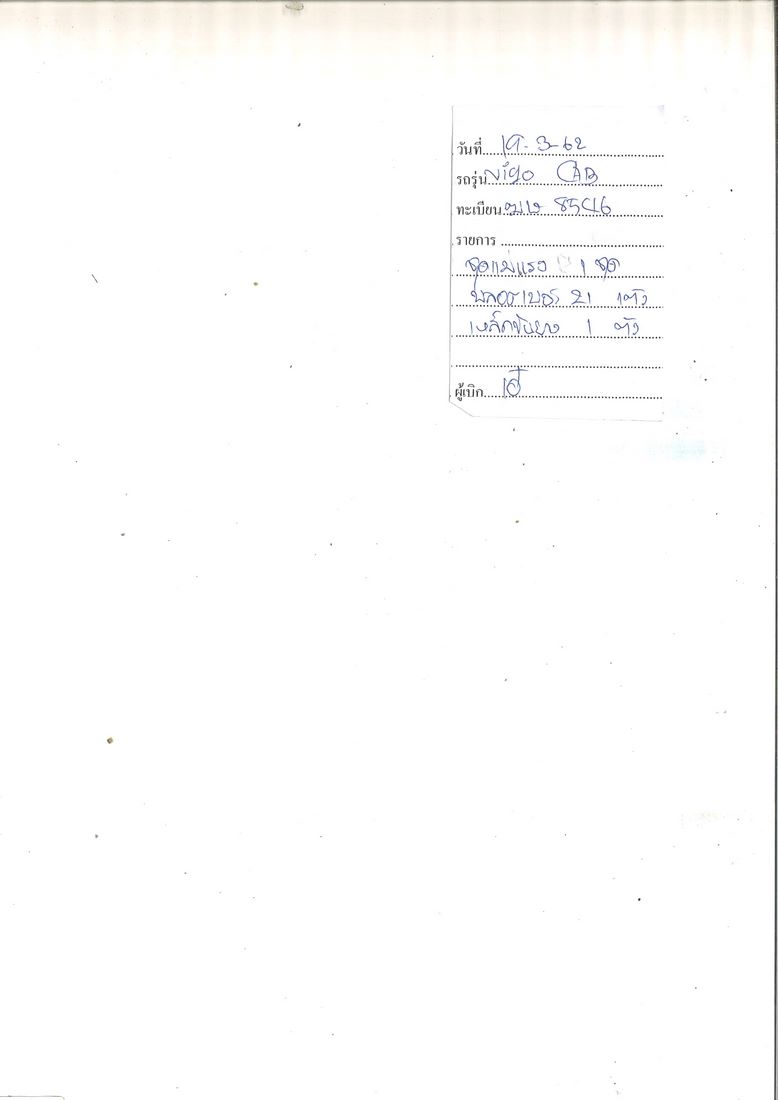 วันที่ 19-3-62
รถรุ่น วีโก้ CAB
ทะเบียน ฒษ 8516
รายการ
ชุดแม่แรง 1 ชุด
บล็อกเบอร์ 21 1 ตัว
เหล็กขันยาง 1 ตัว
ผู้เบิก เอ๋